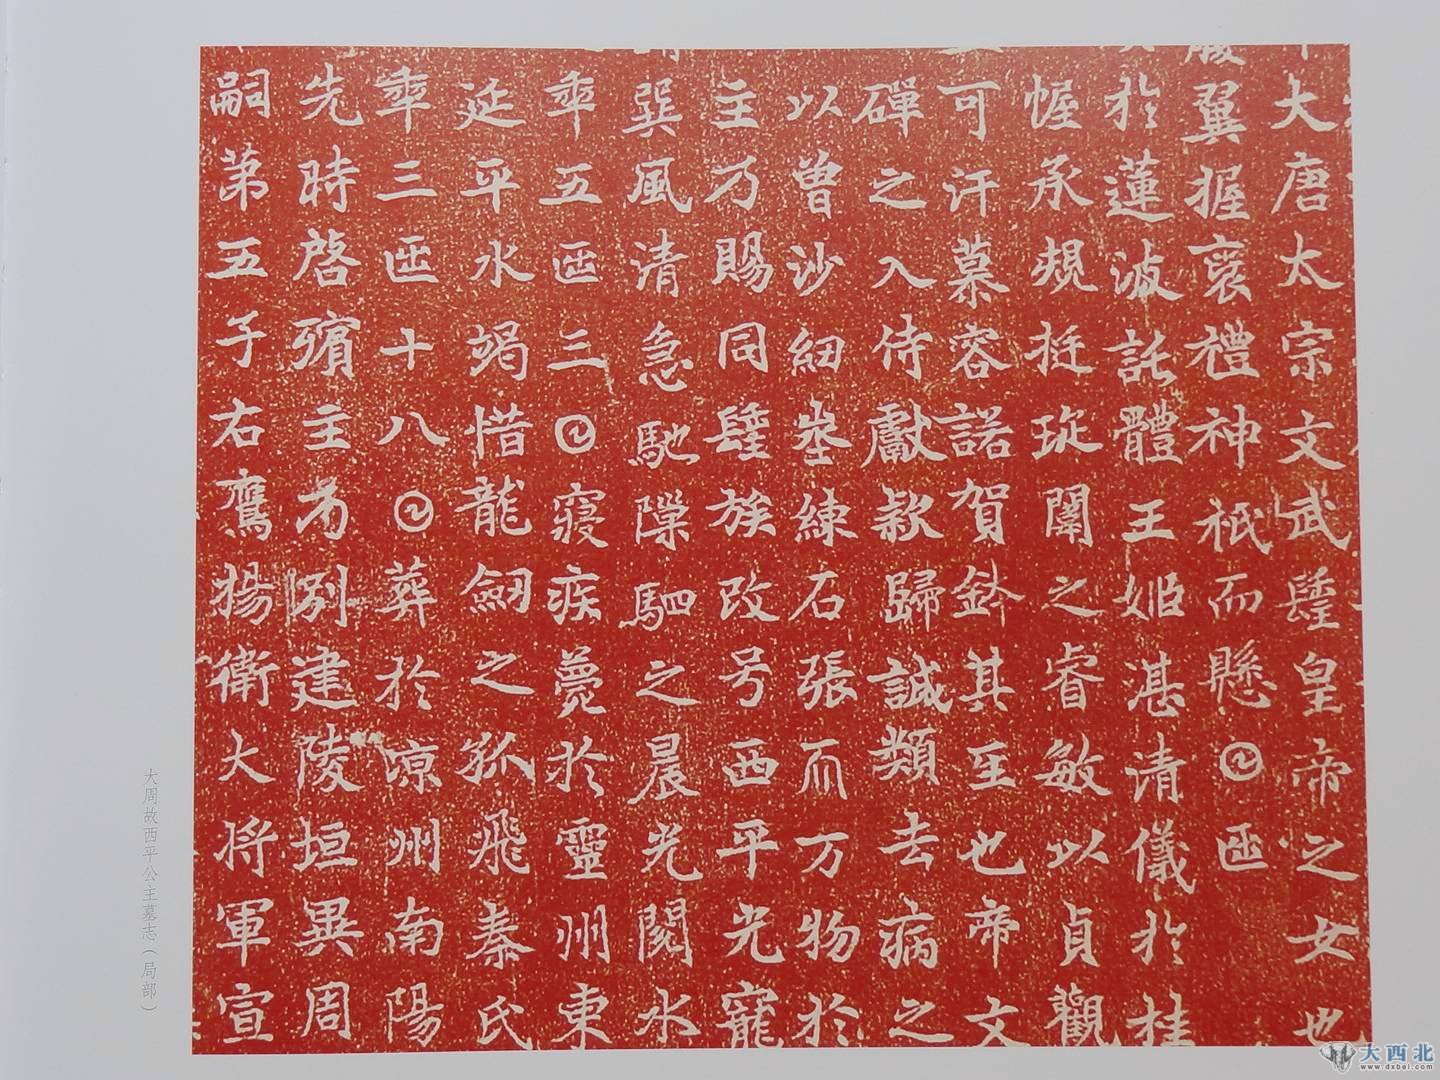 大唐太宗文武𨲢皇帝之女也
翼握裒禮神祇而懸𡆠𠥱
於蓮波託體王姬湛清儀於桂
幄承規挺琁闈之睿敏以貞觀
可汗慕容諾賀鉢其𤯔也帝文
磾之入侍獻款歸誠類去病之
以曾沙紐埊練石張𠀑万物於
主乃賜同𨲢族改号西平光寵
巽風清急馳隟駟之晨光閱水
𠡦五𠥱三𡆠寢疾薨於靈州東
延平水竭惜龍劒之孤飛秦氏
𠡦三𠥱十八𡆠葬於凉州南陽
先時啓殯主乃別建陵垣異周
嗣第五子右鷹揚衛大將軍宣
大周故西平公主墓志（局部）
大西北
www.dxbei.com